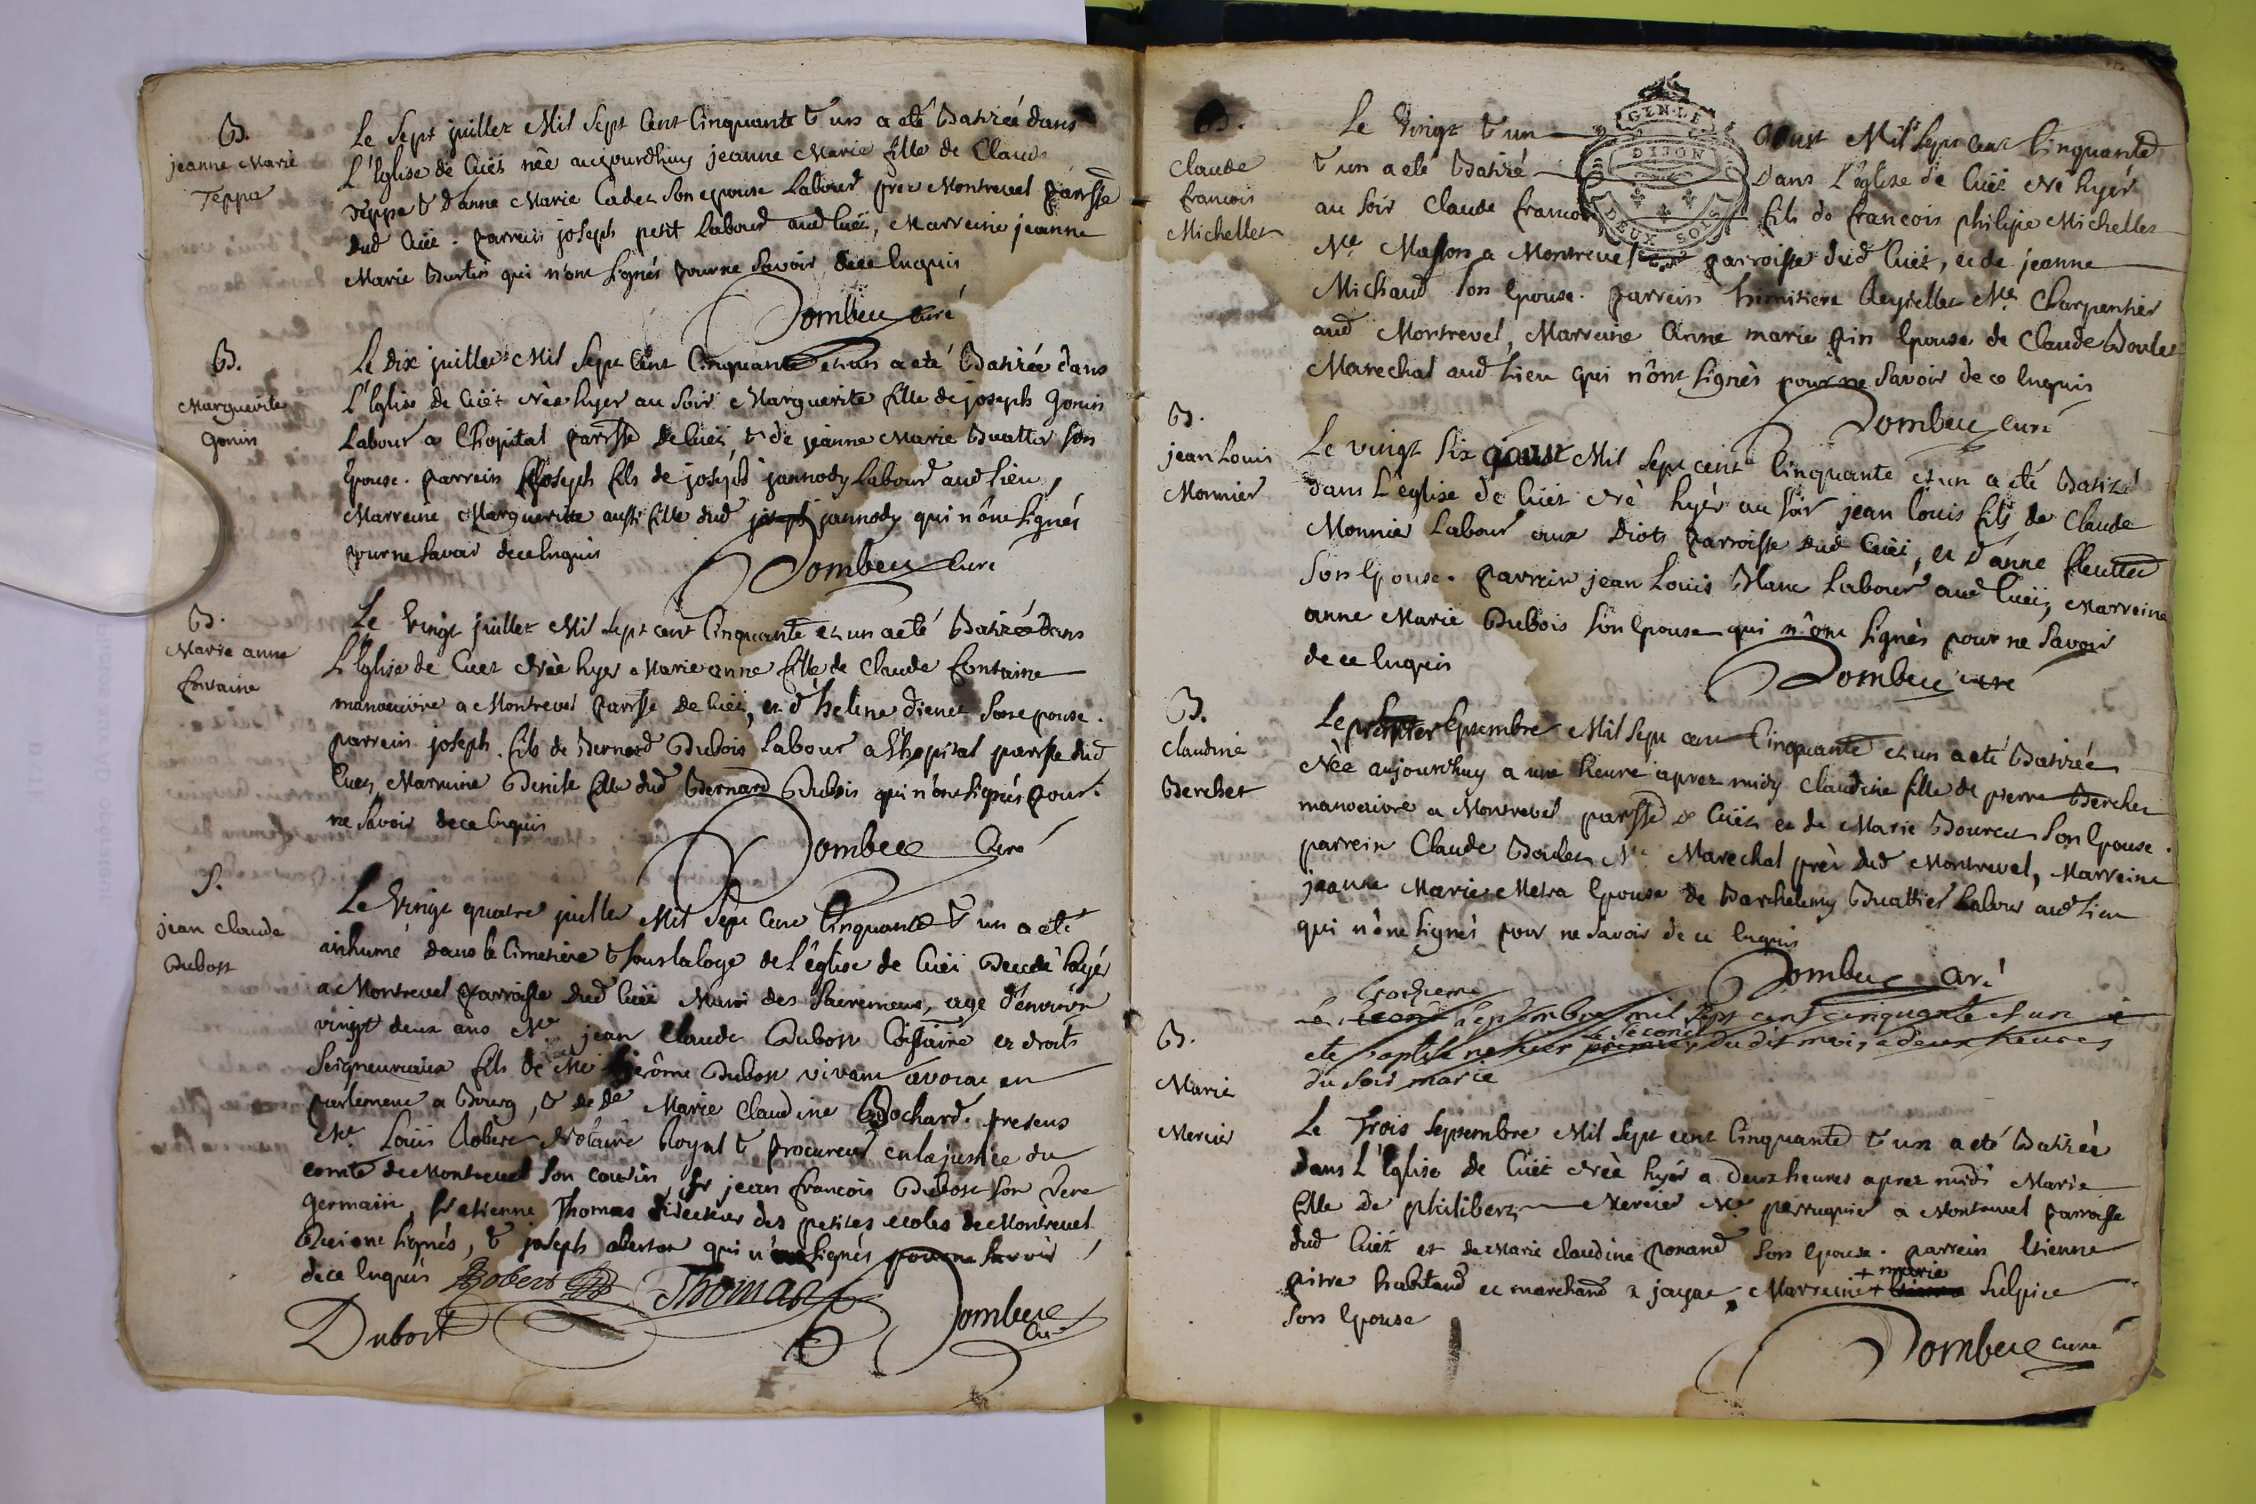 B.
jeanne Marie
Teppe
Le Sept juillet Mil Sept Cent Cinquante & un a eté Batizée dans
L'Eglise de Cuët née aujourdhuy jeanne Marie fille de Claude
Teppe & d'anne Marie Cadet Son epouse Labour prez Montrevel parsse
dud Cuët. parrein joseph petit Labour aud Cuët, Marreine jeanne
Marie Burtin qui n'ont signés pour ne savoir de ce Enquis
Dombeu curé
B.
Marguerite
gonin
Le Dix juillet Mil Sept Cent Cinquante et un a eté Batizée dans
L'Eglise de Cuët Née hyer au Soir Marguerite fille de joseph gonin
Labour a L'hopital parsse de Cuët & de jeanne Marie Buattier Son
Epouse. parrein joseph fils de joseph jannody Labour aud Lieu,
Marreine Marguerite aussi fille dud joseph jannody qui n'ont signés
pour ne savoir de ce Enquis
Dombeu curé
B.
Marie anne
fontaine
Le Vingt juillet Mil Sept cent Cinquante et un a eté Batizée Dans
L'Eglise de Cuet Née hyer Marie anne fille de Claude fontaine
manoeuvre a Montrevel parsse de Cuët, et d'heleine dienet Son epouse.
parrein joseph fils de Bernard Dubois Labour a L'hopital parsse dud
Cuet, Marreine Denise fille dud Bernard Dubois qui n'ont signés pour
ne savoir de ce Enquis
Dombeu Curé
S.
jean claude
Dubost
Le Vingt quatre juillet Mil Sept Cent Cinquante & un a eté
inhumé dans le Cimetiere & sous la loge de L'église de Cuët Decedé hyer
a Montrevel parroisse dud Cuët Muni des Sacremens, agé d'environ
vingt deux ans Me jean Claude Dubost Comissaire es droits
Seigneuriaux fils de Me hierôme Dubost vivant avocat en
parlement a Bourg, & de De Marie Claudine Bochard. presens
Me Louis Robert Notaire Royal & procureur en la justice du
comté de Montrevel son cousin, Sr jean francois Dubost Son frere
germain, Sr etienne Thomas directeur des petites ecoles de Montrevel
Qui ont signés, & joseph qui n'a signés pour ne savoir
de ce Enquis Robert Thomas
Dubost Dombeu
Curé
B.
Claude
francois
Michellet
GEN. LE
DIJON
DEUX SOLS
Le Vingt & un Aoust Mil Sept cent Cinquante
& un a eté Batizé Dans L'eglise de Cuët Né hyer
au Soir Claude francois fils de francois philipe Michellet
Me Masson a Montrevel parroisse dud Cuët, et de jeanne
Michaud Son Epouse. parrein Me Charpentier
aud Montrevel, Marreine Anne marie pin Epouse de Claude Boulet
Marechal aud Lieu qui n'ont signés pour ne savoir de ce Enquis
Dombeu curé
B.
jean Louis
Monnier
Le vingt Six aoust Mil Sept cent Cinquante et un a eté Batizé
dans L'église de Cuët Né hyer au soir jean louis fils de Claude
Monnier Labour aux Diots parroisse dud Cuët, et d'anne
Son Epouse. parrein jean Louis Blanc Labour aud Cuët, Marreine
anne Marie Dubois Son Epouse qui n'ont signés pour ne savoir
de ce Enquis
Dombeu curé
B.
Claudine
Berchet
Le premier Septembre Mil Sept cent Cinquante et un a eté Batizée
Née aujourdhuy a une heure aprez midy Claudine fille de pierre Berchet
manoeuvre a Montrevel parsse de Cuët et de Marie Son Epouse.
parrein Claude Boulet Me Marechal près dud Montrevel, Marreine
jeanne Marie Metra Epouse de Barthelemy Buattier Labour aud Lieu
qui n'ont signés pour ne savoir de ce Enquis
Dombeu curé
troisieme
le second septembre mil sept cent cinquante et un a
le second
eté baptisé né hier premier du dit mois, a deux heures
du soir marie
B.
Marie
Mercier
Le Trois Septembre Mil Sept cent Cinquante & un a eté Batizée
dans L'Eglise de Cuët Née hyer a Deux heures aprez midi Marie
fille de philibert Mercier Me perruquier a Montrevel parroisse
dud Cuët et de Marie Claudine ponand Son Epouse. parrein Etienne
pitre habitand et marchand a jayat, Marreine + Sulpice
+ marie
Son Epouse
Dombeu curé